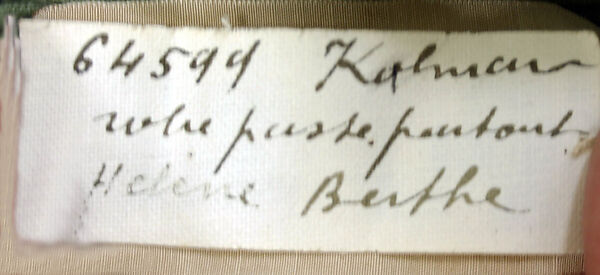 64599 Kalman
robe passe partout
Hélène Berthe